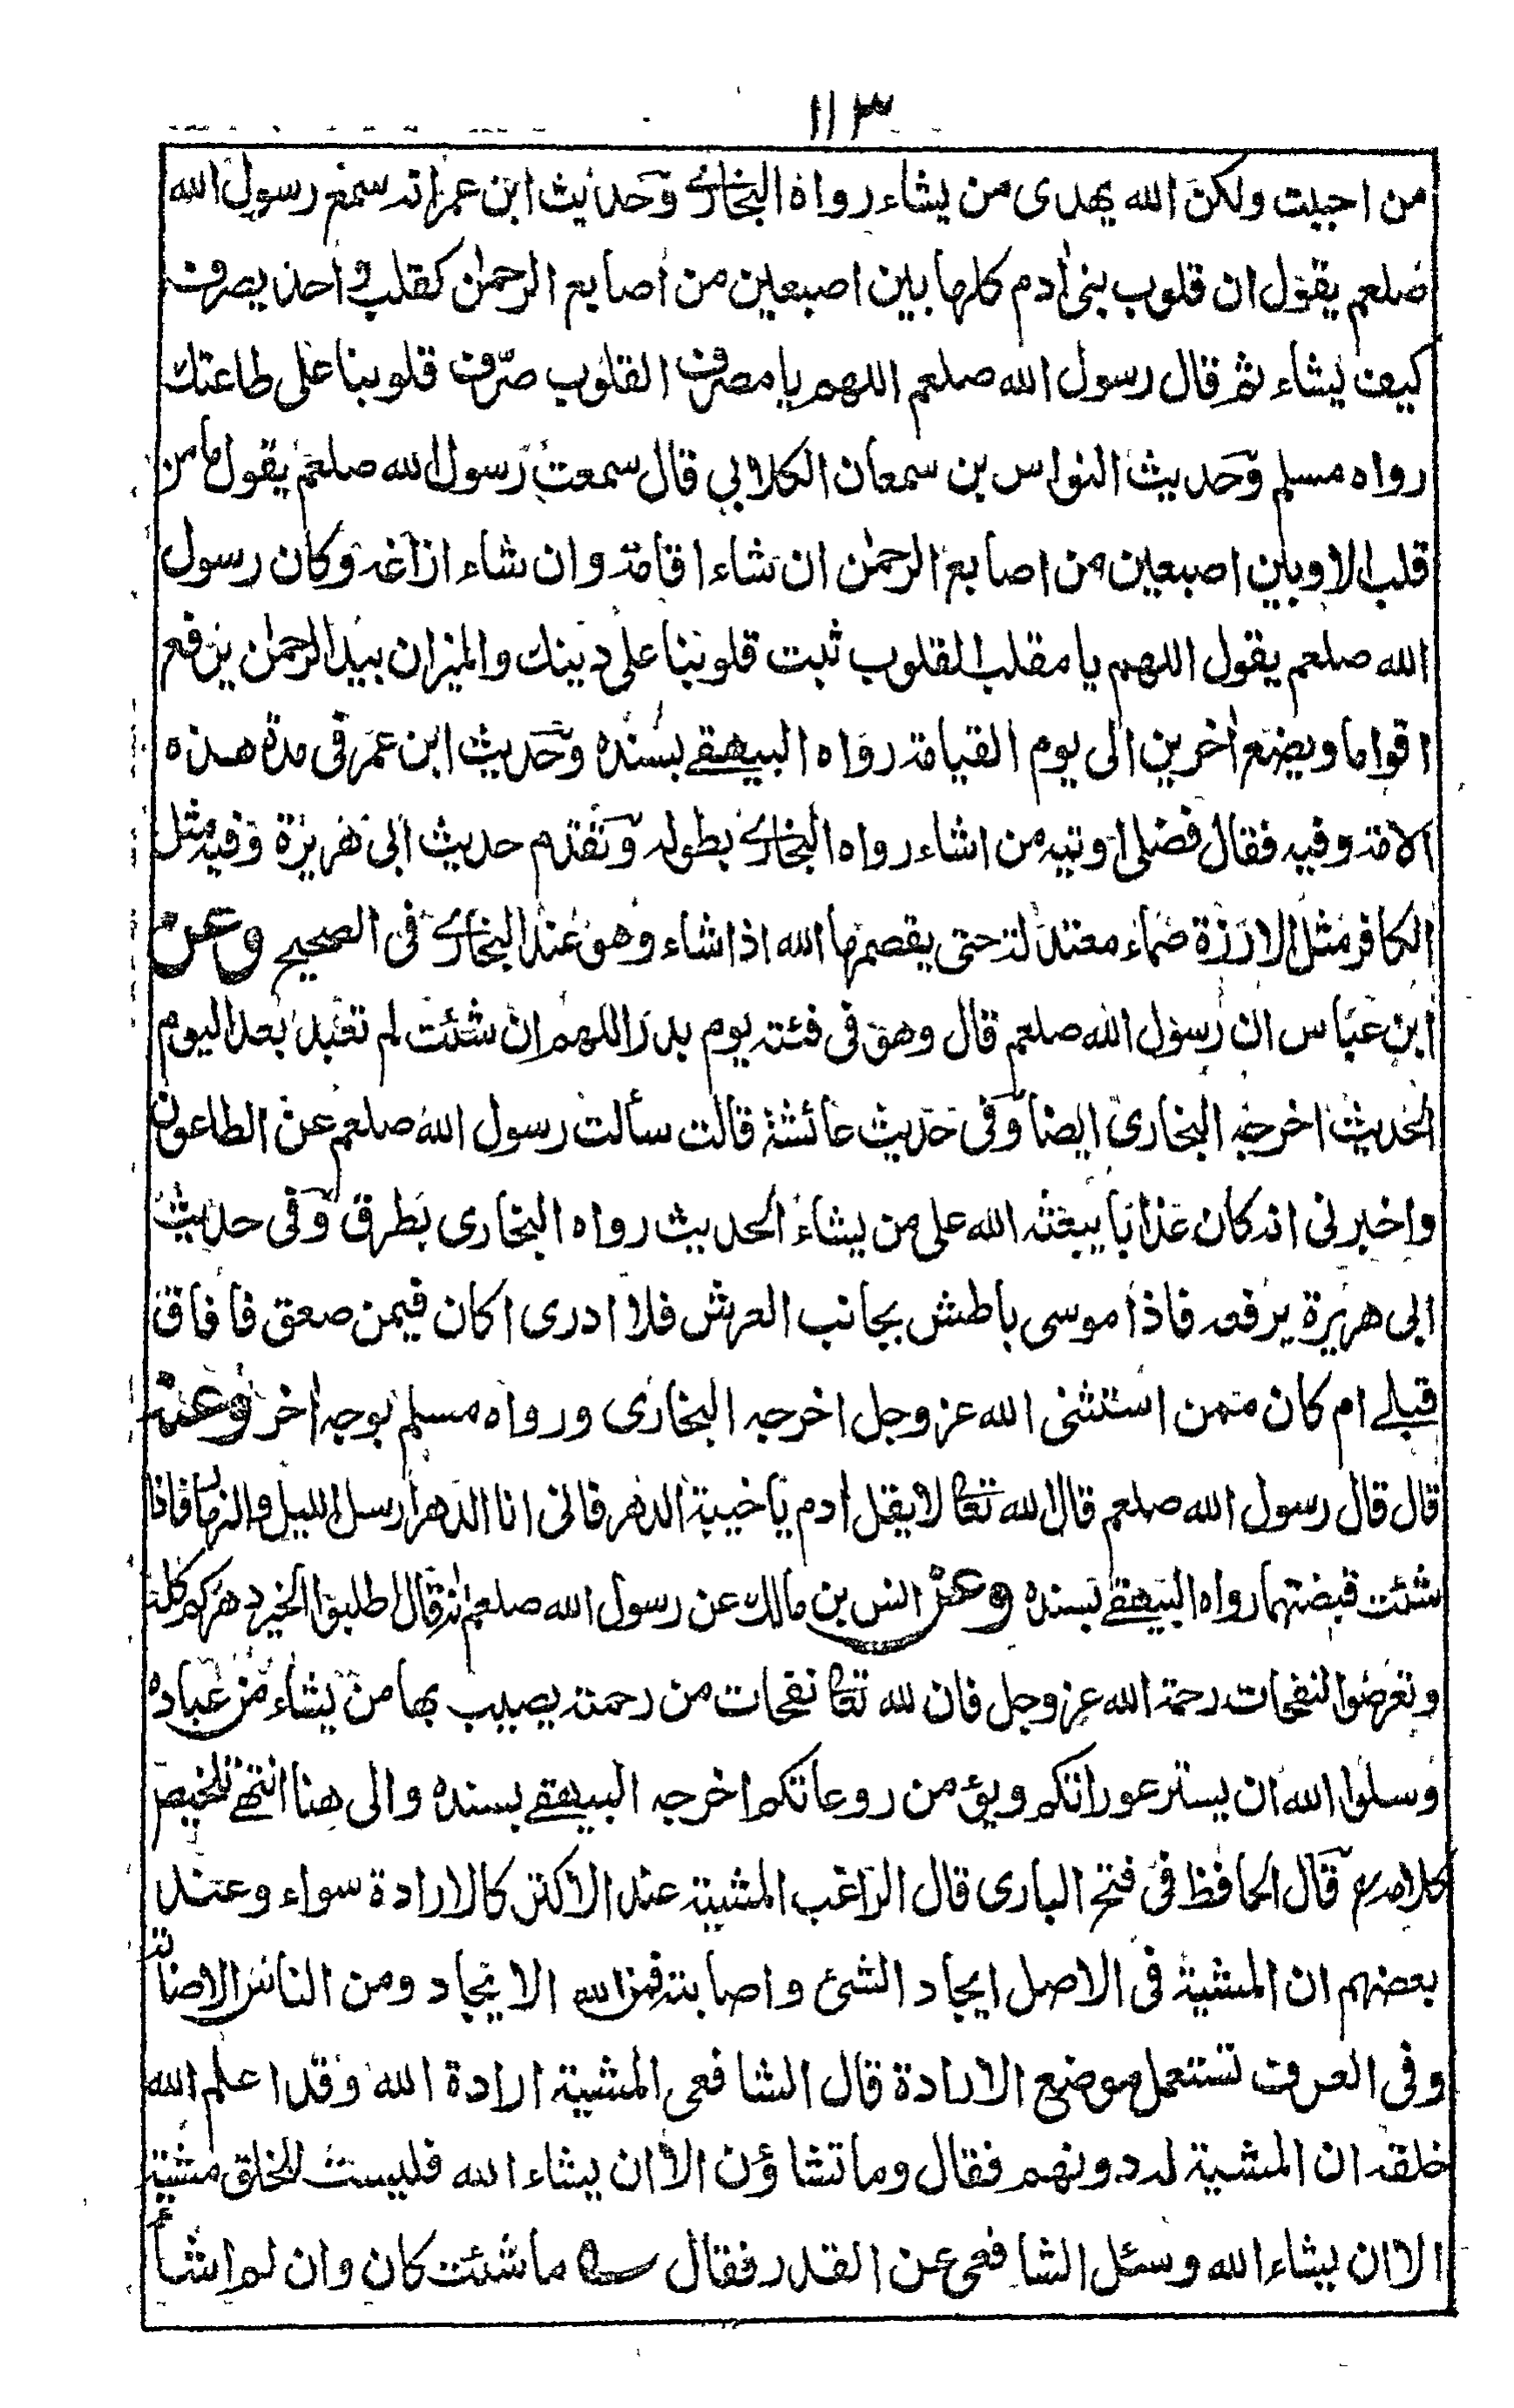 ١١٣
من احببت ولكن الله يهدى من يشاء رواه البخارى وحديث ابن عمر انه سمع رسول الله
صلعم يقول ان قلوب بنى ادم كلها بين اصبعين من اصابع الرحمن كقلب واحد يصرف
كيف يشاء ثم قال رسول الله صلعم اللهم يا مصرف القلوب صرّف قلوبنا على طاعتك
رواه مسلم وحديث النواس بن سمعان الكلابي قال سمعت رسول الله صلعم يقول ما من
قلب الا وبين اصبعين من اصابع الرحمن ان شاء اقامه وان شاء ازاغه وكان رسول
الله صلعم يقول اللهم يا مقلب القلوب ثبت قلوبنا على دينك والميزان بيد الرحمن يرفع
اقواما ويضع اخرين الى يوم القيامة رواه البيهقى بسنده وحديث ابن عمر فى مدة هذه
الامة وفيه فقال فضلى اوتيه من اشاء رواه البخارى بطوله وتقدم حديث ابى هريرة وفيه مثل
الكافر مثل الارزة صماء معتدلة حتى يقصمها الله اذا شاء وهو عند البخارى فى الصحيح وعن
ابن عباس ان رسول الله صلعم قال وهو فى فئته يوم بدر اللهم ان شئت لم تعبد بعد اليوم
الحديث اخرجه البخارى ايضا وفى حديث عائشة قالت سألت رسول الله صلعم عن الطاعون
واخبرنى انه كان عذابا يبعثه الله على من يشاء الحديث رواه البخارى بطرق وفى حديث
ابى هريرة يرفعه فاذا موسى باطش بجانب العرش فلا ادرى اكان فيمن صعق فافاق
قبلى ام كان ممن استثنى الله عز وجل اخرجه البخارى ورواه مسلم بوجه اخر وعنه
قال قال رسول الله صلعم قال الله تعا لا يقل ادم يا خيبة الدهر فانى انا الدهر ارسل الليل والنهار فاذا
شئت قبضتهما رواه البيهقى بسنده وعن انس بن مالك عن رسول الله صلعم انه قال اطلبوا الخير دهركم كله
وتعرضوا لنفحات رحمة الله عز وجل فان لله تعا نفحات من رحمته يصيب بها من يشاء من عباده
وسلوا الله ان يستر عوراتكم ويؤمن روعاتكم اخرجه البيهقى بسنده والى هنا انتهى تلخيص
كلامه قال الحافظ فى فتح البارى قال الراغب المشية عند الاكثر كالارادة سواء وعند
بعضهم ان المشية فى الاصل ايجاد الشئ واصابته فمن الله الايجاد ومن الناس الاصابة
وفى العرف تستعمل موضع الارادة قال الشافعى المشية ارادة الله وقد اعلم الله
خلقه ان المشية له دونهم فقال وما تشاؤن الا ان يشاء الله فليست للخلق مشية
الا ان يشاء الله وسئل الشافعى عن القدر فقال ما شئت كان وان لم اشأ